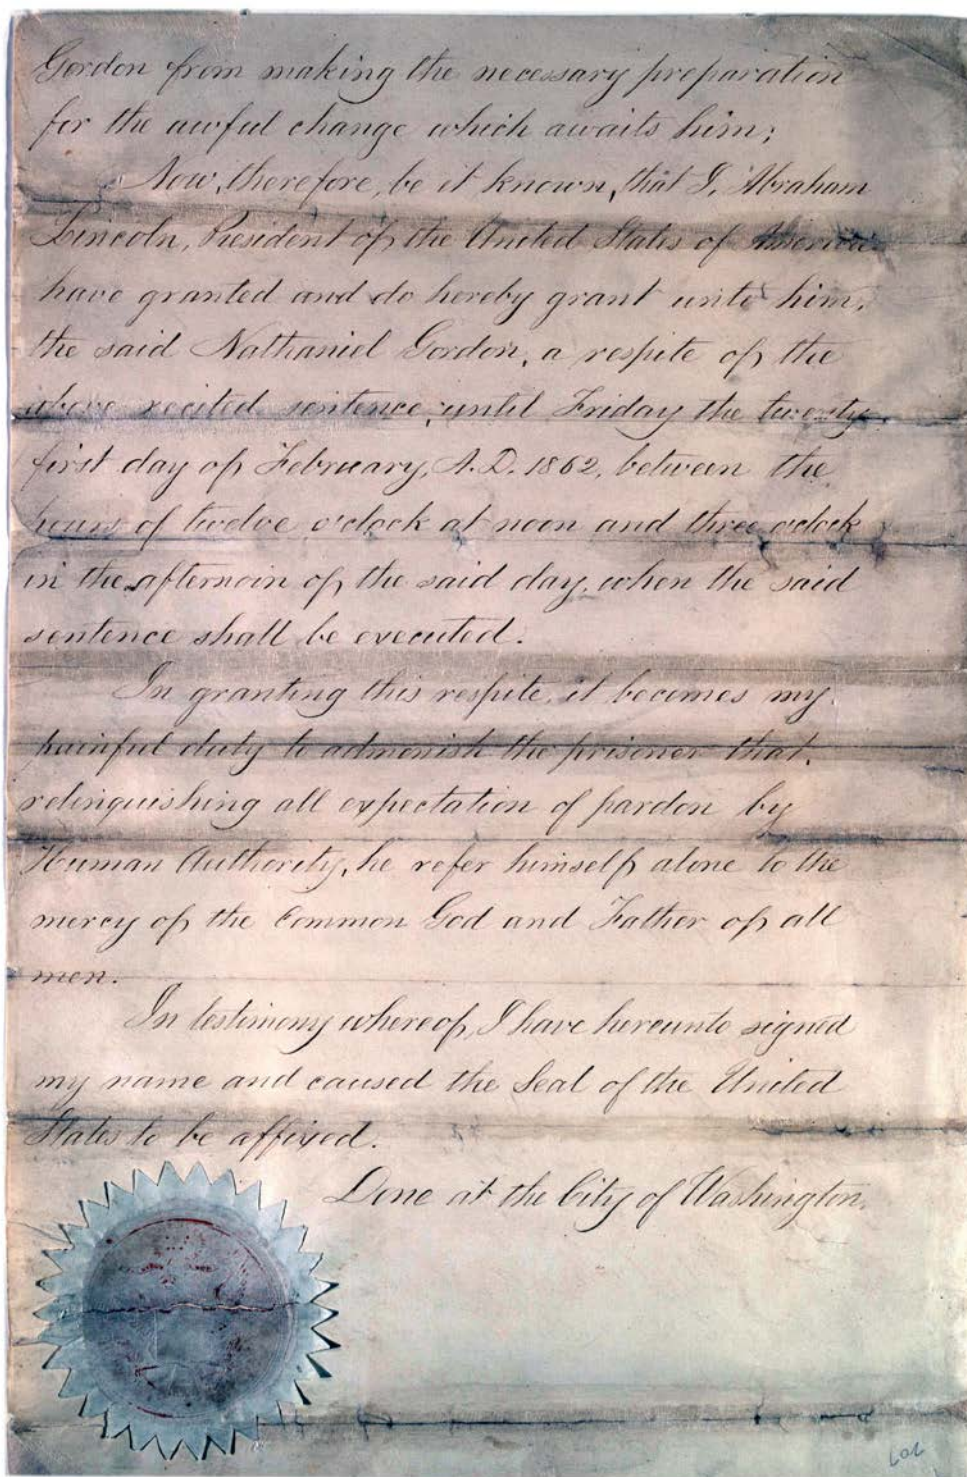 Gordon from making the necessary preparation
for the awful change which awaits him;
Now, therefore, be it known, that I, Abraham
Lincoln, President of the United States of America
have granted and do hereby grant unto him,
the said Nathaniel Gordon, a respite of the
above recited sentence, until Friday the twenty
first day of February, A.D. 1862, between the
hours of twelve o'clock at noon and three o'clock
in the afternoon of the said day, when the said
sentence shall be executed.
In granting this respite, it becomes my
painful duty to admonish the prisoner that,
relinquishing all expectation of pardon by
Human Authority, he refer himself alone to the
mercy of the Common God and Father of all
men.
In testimony whereof, I have hereunto signed
my name and caused the Seal of the United
States to be affixed.
Done at the City of Washington,